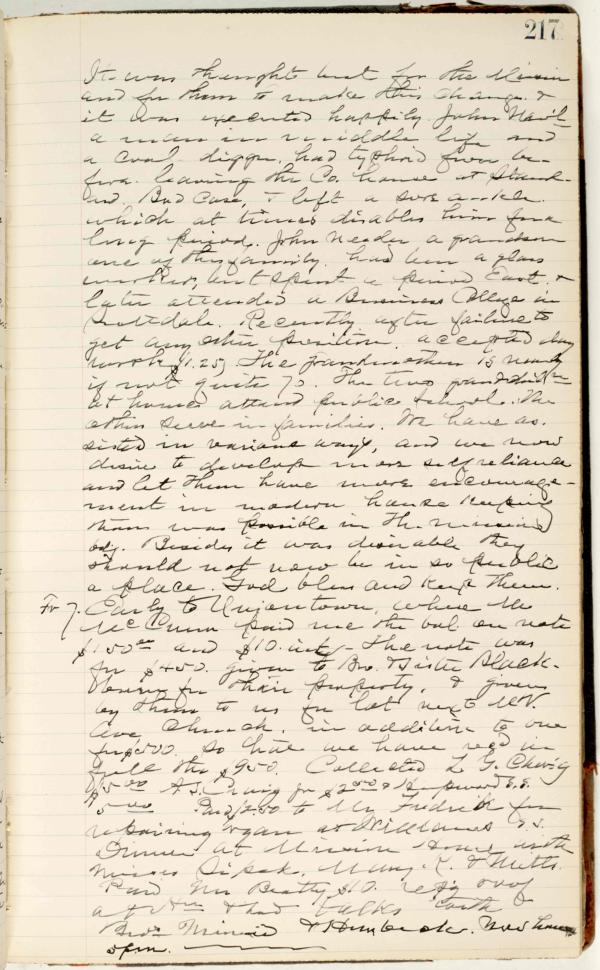 217
It was thought best for the Mission
and for them to make this change &
it was executed happily. John
a man in middle life and
a coal digger, had typhoid fever be-
fore leaving the Co. house at
Bad Case, & left a sore ankle
which at times disables him for a
long period. John Neder a grandson
one of this family, had been a glass
worker, but spent a period East &
later attended a Business College in
Scottdale. Recently after failure to
get any other position, accepted day
work $1.25). The grandmother is nearly
if not quite 70. The two grandchildren
at home attend public school. The
others serve in families. We have as-
sisted in various ways, and we now
desire to develop more self reliance
and let them have more encourage-
ment in modern house keeping
than was possible in the mission
bdg. Besides it was desirable they
should not now be in so public
a place. God bless and keep them.
Fr 7. Early to Uniontown, where Mr.
McCunn paid me the bal. on note
$150 00 and $10. int/- The note was
for $450. given to Bro. & Sister Black-
burn for their property, & given
by them to us for lot next W.V.
Ave Church, in addition to one
for $500. So that we have rec'd in
full the $950. Collected L. G.
$5 00 A. S. Craig for $2 50 &
5 00 Paid $2.50 to Mr. Fredrick for
repairing organ at S.S.
Dinner at Mission House with
Misses Mary K. &
Paid Mr. Beatty $10. roof
at & had talks with
Bros & Humbert. Was home
5 pm.